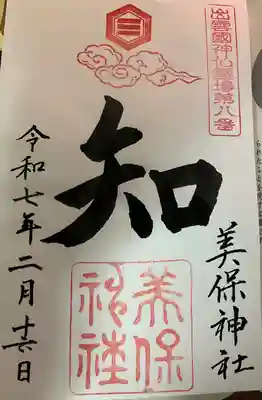 出雲國神仏霊場第八番
美保神社
知
美保
神社
令和七年二月十六日